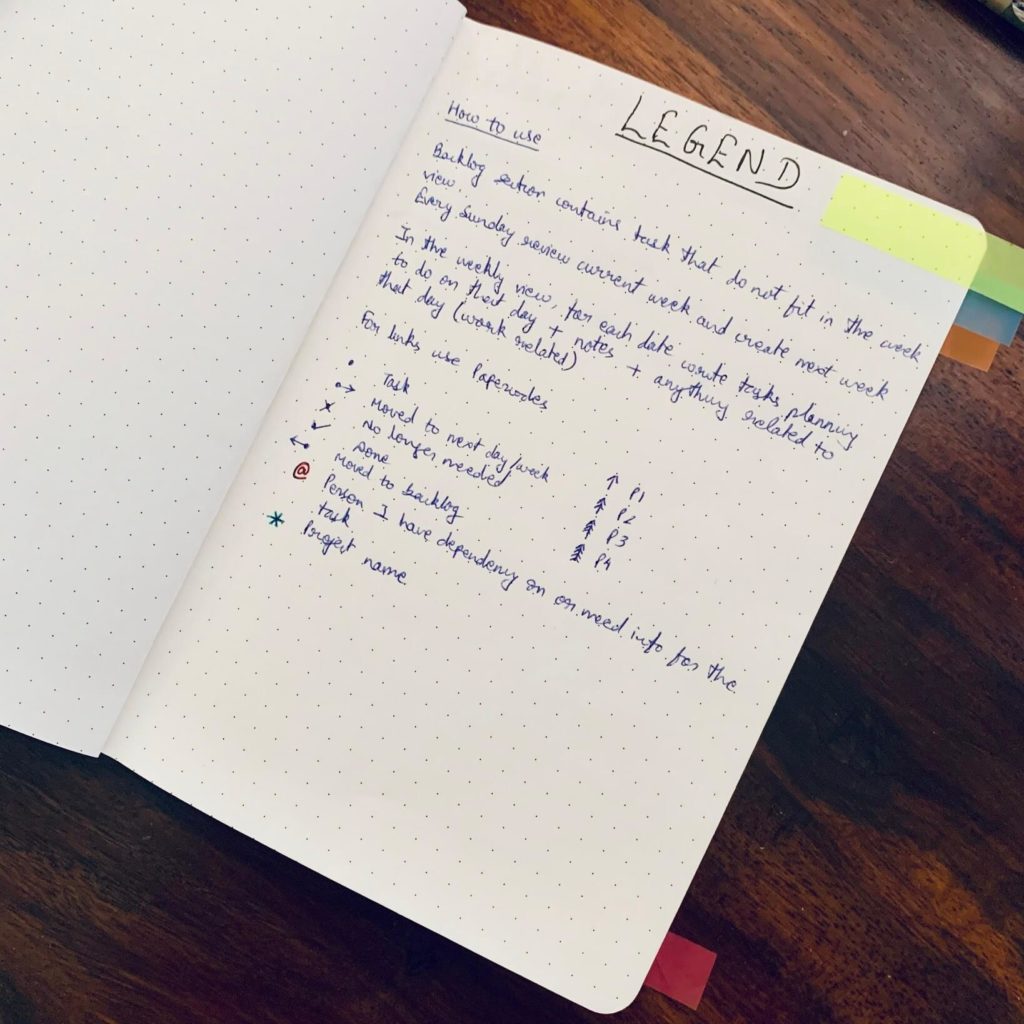 LEGEND
How to use
Backlog section contains task that do not fit in the week
view.
Every Sunday review current week and create next week
In the weekly view, for each date write tasks planning
to do on that day + notes + anything related to
that day (work related)
For links use Papernodes
• Task
•→ Moved to next day/week
× No longer needed
✓ Done
←• Moved to backlog
@ Person I have dependency on or need info for the
task
* Project name
↑ P1
P2
P3
P4